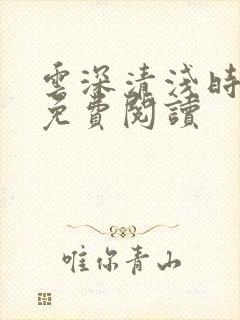 雲深清淺時
免費閱讀
唯你青山